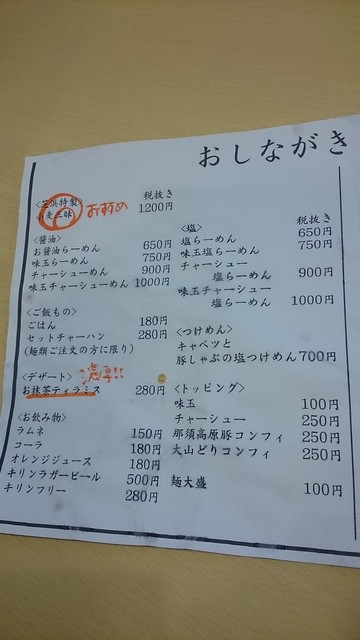 おしながき
税抜き
<芝浜特製>
小麦三昧 おすすめ 1200円
<醤油>
お醤油らーめん 650円
味玉らーめん 750円
チャーシューめん 900円
味玉チャーシューめん 1000円
<ご飯もの>
ごはん 180円
セットチャーハン 280円
(麺類ご注文の方に限り)
<デザート> 濃厚!!
お抹茶ティラミス 280円
<お飲み物>
ラムネ 150円
コーラ 180円
オレンジジュース 180円
キリンラガービール 500円
キリンフリー 280円
税抜き
<塩>
塩らーめん 650円
味玉塩らーめん 750円
チャーシュー
塩らーめん 900円
味玉チャーシュー
塩らーめん 1000円
<つけめん>
キャベツと
豚しゃぶの塩つけめん 700円
<トッピング>
味玉 100円
チャーシュー 250円
那須高原豚コンフィ 250円
大山どりコンフィ 250円
麺大盛 100円